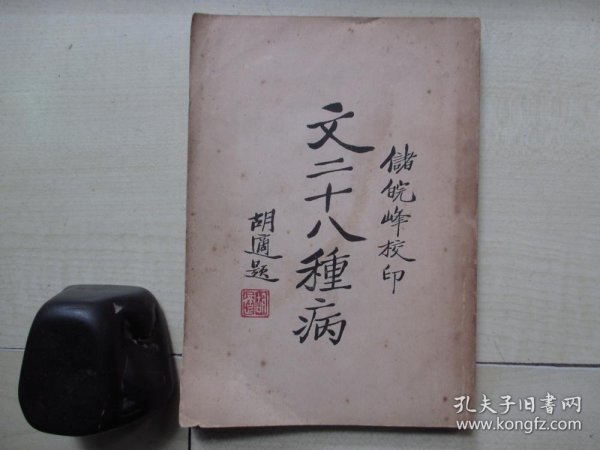 儲皖峰校印
文二十八種病
胡適題
孔夫子旧书网
www.kongfz.com